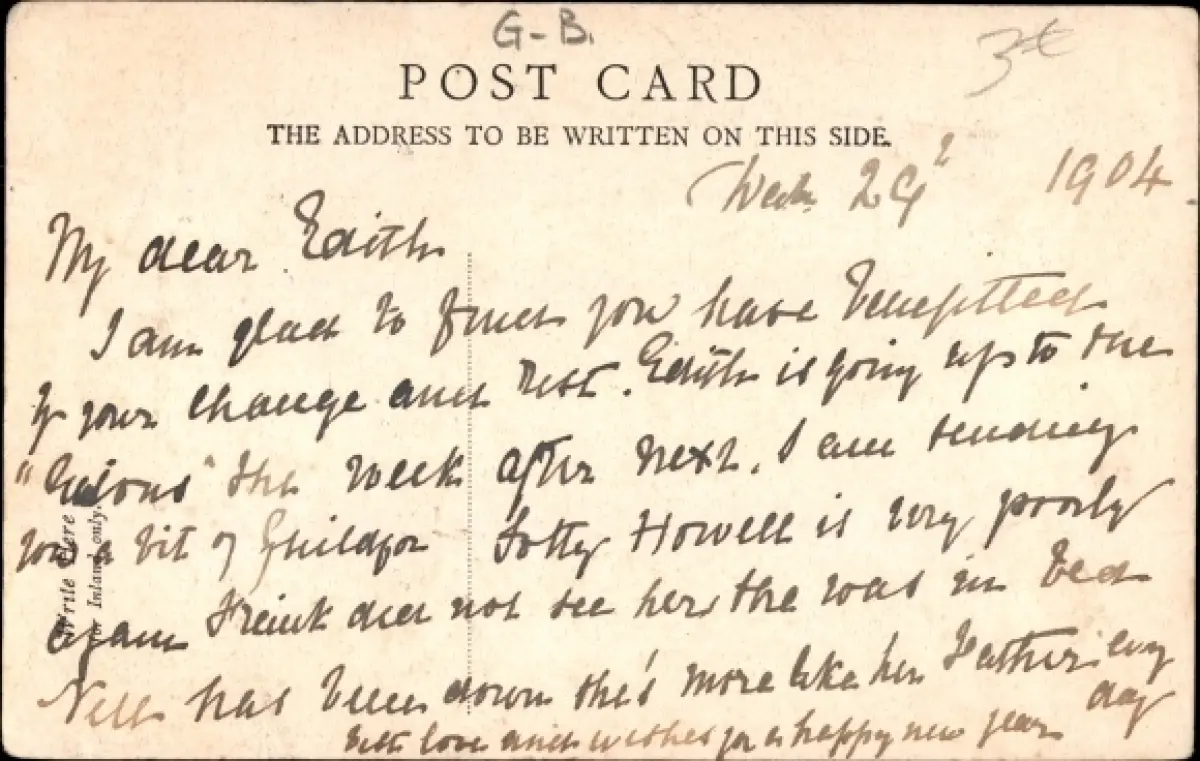 G-B.
POST CARD
THE ADDRESS TO BE WRITTEN ON THIS SIDE.
29 1904
My dear Edith
I am glad to find you have benefitted
by your change and rest. Edith is going up to the
the week after next. I am sending
you a bit of Lotty Howell is very poorly
again Frank did not see her she was in bed
Nell has been down she's more like her Father every
day
with love and wishes for a happy new year
Write Here
Inland only.